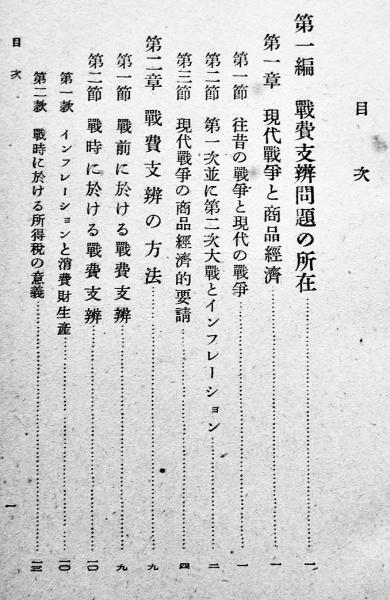 目次
第一編 戰費支辨問題の所在……一
第一章 現代戰爭と商品經濟……一
第一節 往昔の戰爭と現代の戰爭……一
第二節 第一次並に第二次大戰とインフレーション……二
第三節 現代戰爭の商品經濟的要請……四
第二章 戰費支辨の方法……九
第一節 戰前に於ける戰費支辨……九
第二節 戰時に於ける戰費支辨……一〇
第一款 インフレーションと消費財生產……一〇
第二款 戰時に於ける所得稅の意義……一三
目次
一